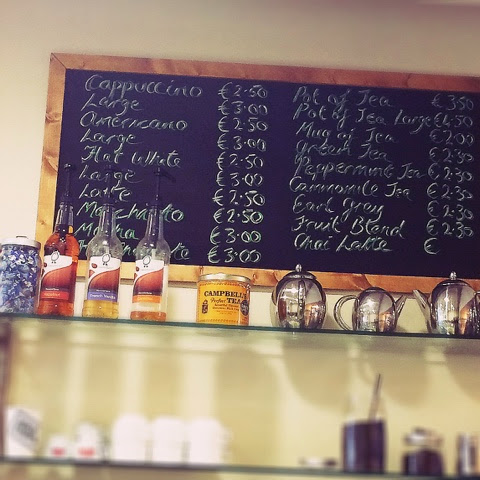 Cappuccino €2.50
Large €3.00
Americano €2.50
Large €3.00
Flat White €2.50
Large €3.00
Latte €2.50
Macchiato €2.50
Mocha €3.00
€3.00
Pot of Tea €3.50
Pot of Tea Large €4.50
Mug of Tea €2.00
Green Tea €2.30
Peppermint Tea €2.30
Cammomile Tea €2.30
Earl Grey €2.30
Fruit Blend €2.30
Chai Latte €
CAMPBELL'S
Perfect
TEA